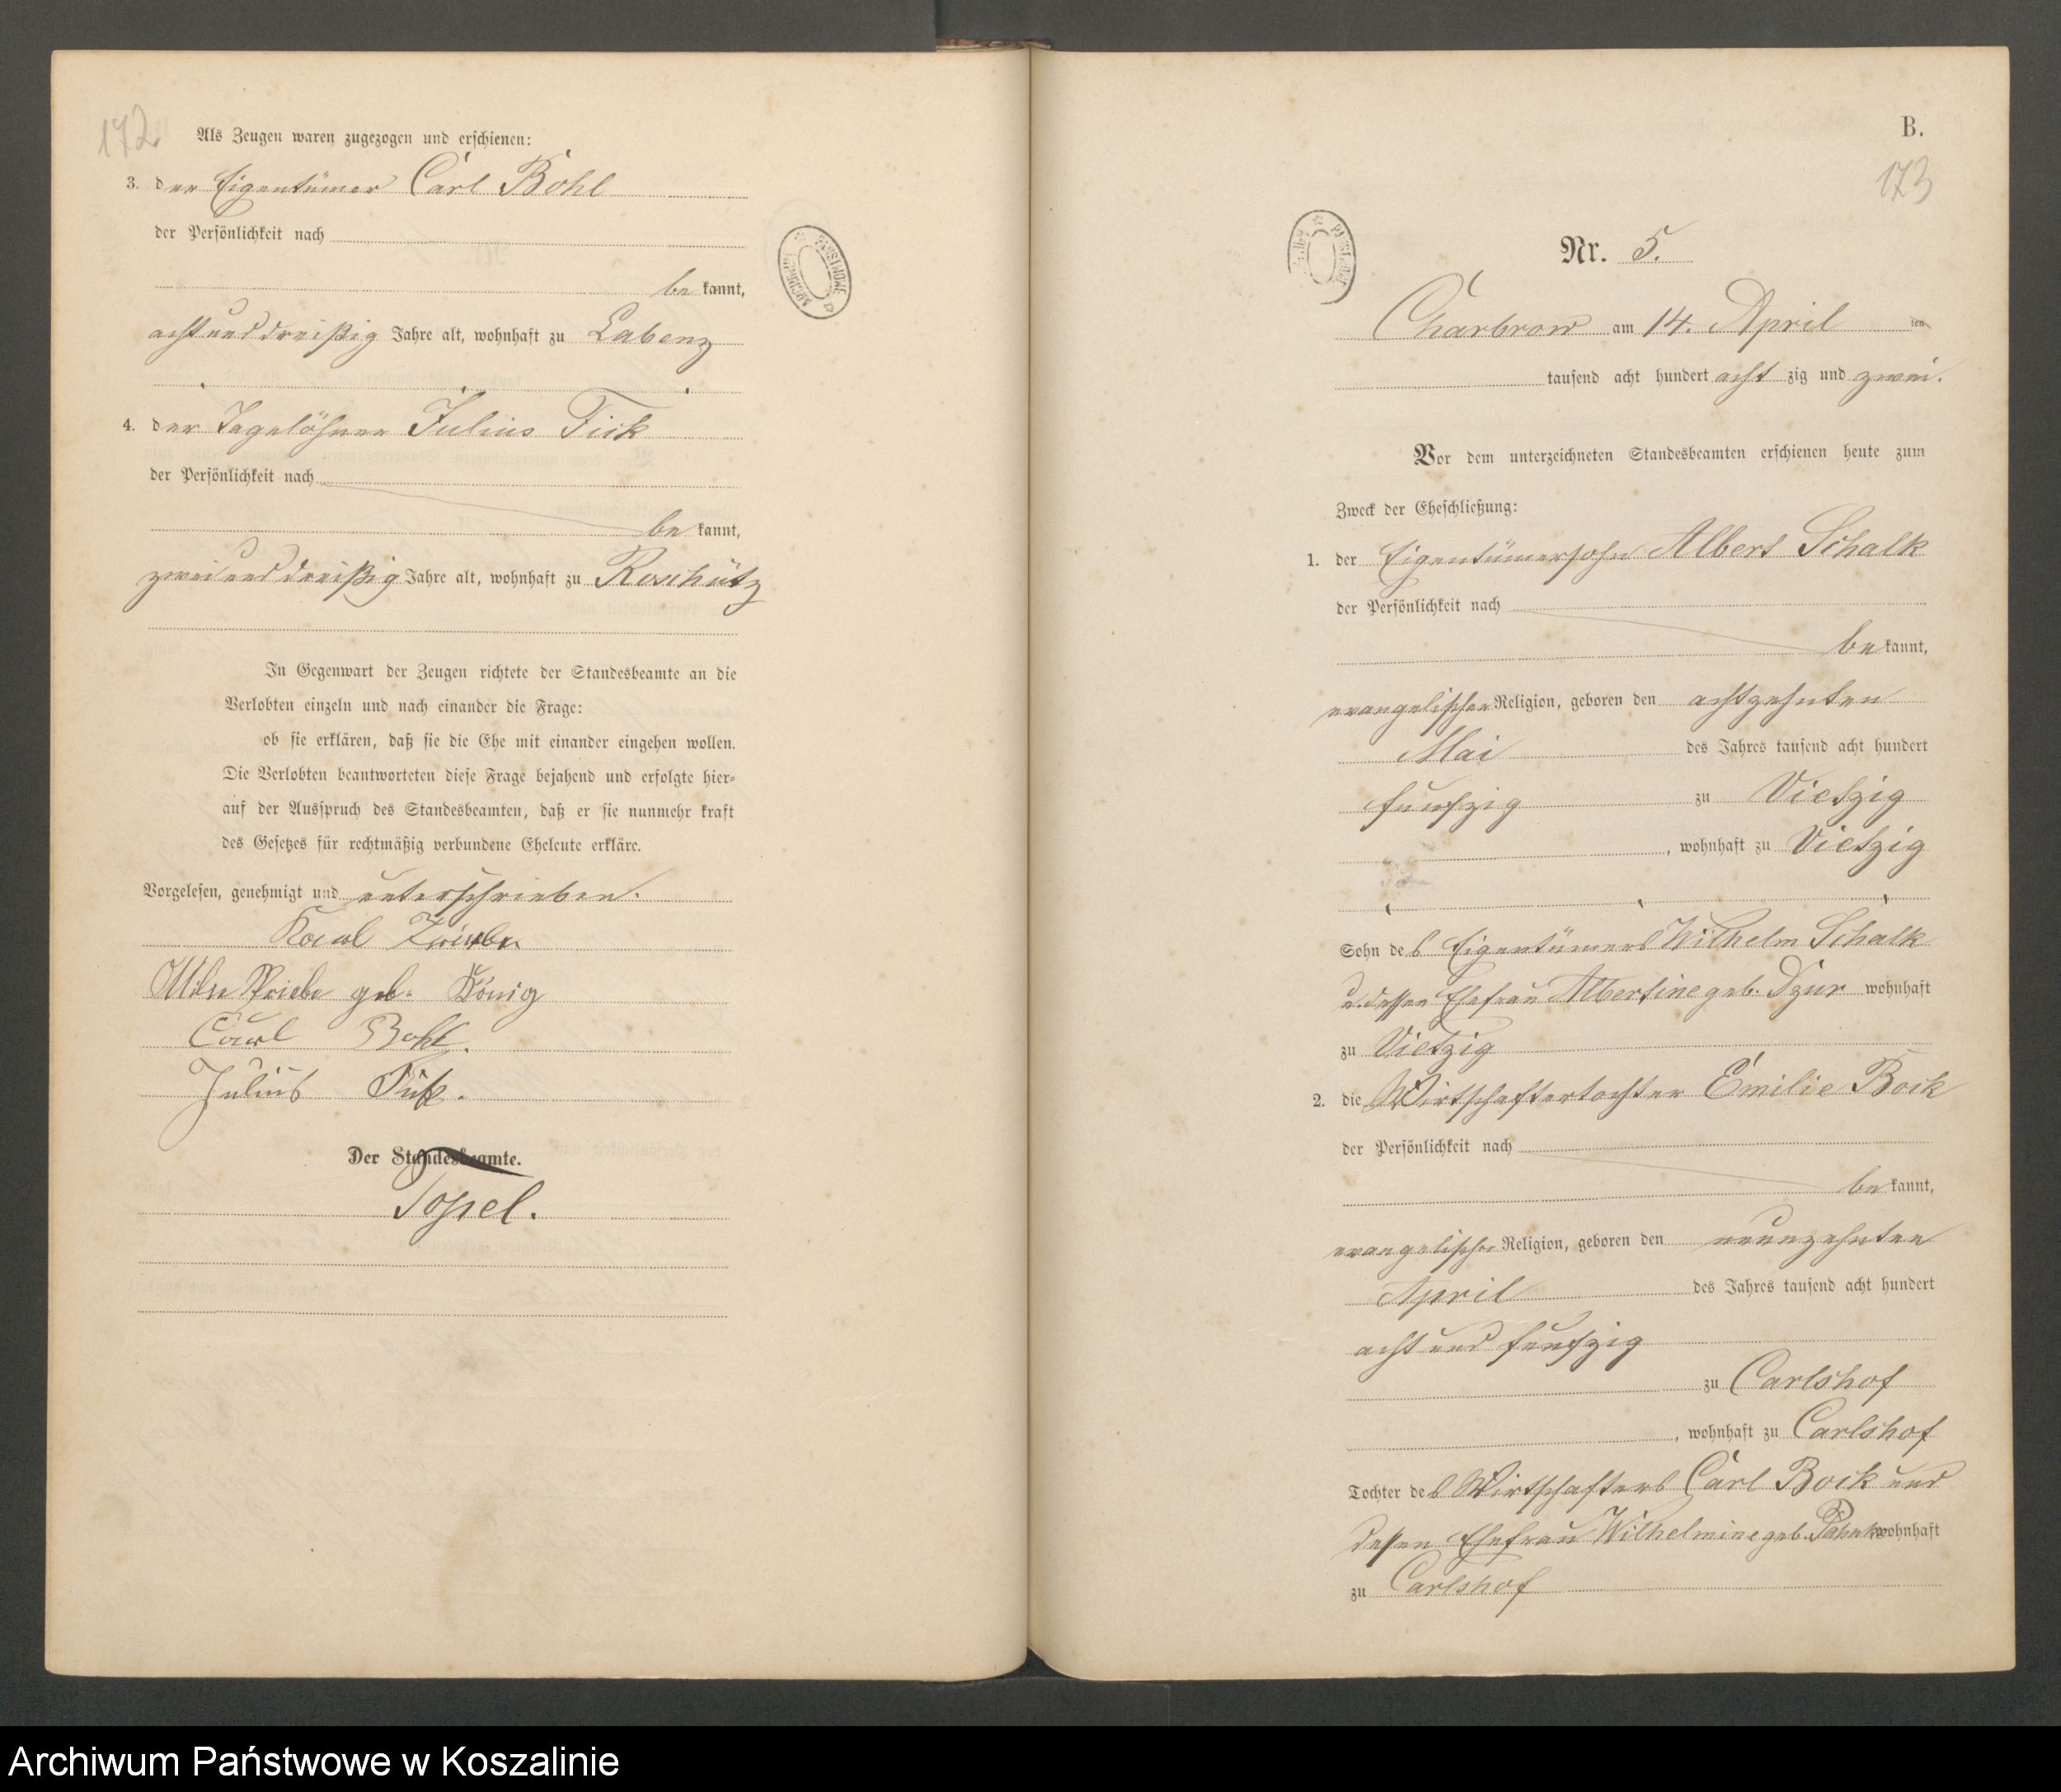 172
Als Zeugen waren zugezogen und erschienen:
3. der Eigentümer Carl Bohl
der Persönlichkeit nach
be kannt,
achtunddreißig Jahre alt, wohnhaft zu Labenz
4. der Tagelöhner Julius Fick
der Persönlichkeit nach
be kannt,
zweiunddreißig Jahre alt, wohnhaft zu Roschütz
In Gegenwart der Zeugen richtete der Standesbeamte an die
Verlobten einzeln und nach einander die Frage:
ob sie erklären, daß sie die Ehe mit einander eingehen wollen.
Die Verlobten beantworteten diese Frage bejahend und erfolgte hier-
auf der Ausspruch des Standesbeamten, daß er sie nunmehr kraft
des Gesetzes für rechtmäßig verbundene Eheleute erkläre.
Vorgelesen, genehmigt und unterschrieben.
Karl
Priebe geb. König
Carl Bohl.
Julius Fick.
Der Standesbeamte.
B.
173
Nr. 5.
Charbrow am 14. April ten
tausend acht hundert acht zig und zwei.
Vor dem unterzeichneten Standesbeamten erschienen heute zum
Zweck der Eheschließung:
1. der Eigentümersohn Albert Schalk
der Persönlichkeit nach
be kannt,
evangelischer Religion, geboren den achtzehnten
Mai des Jahres tausend acht hundert
funfzig zu Vietzig
, wohnhaft zu Vietzig
Sohn des Eigentümers Wilhelm Schalk
u. dessen Ehefrau Albertine geb. Dzur wohnhaft
zu Vietzig
2. die Wirtschaftertochter Emilie Bock
der Persönlichkeit nach
be kannt,
evangelischer Religion, geboren den neunzehnten
April des Jahres tausend acht hundert
acht und funfzig
zu Carlshof
, wohnhaft zu Carlshof
Tochter des Wirtschafters Carl Bock und
dessen Ehefrau Wilhelmine geb. wohnhaft
zu Carlshof
Archiwum Państwowe w Koszalinie